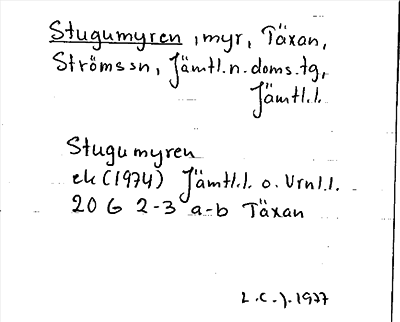 Stugumyren, myr, Täxan,
Ströms sn, Jämtl.n.doms.tg,
Jämtl.l.
Stugumyren
ek (1974) Jämtl.l. o. Vrnl.l.
20 G 2-3 a-b Täxan
L.C.J. 1977